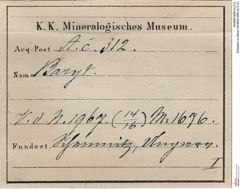 K. K. Mineralogisches Museum.
Acq. Post A.č. 312.
Name Baryt.
V. d. N. 1967. (14/16) M. 1676.
Fundort. Schemnitz, Ungarn.
I